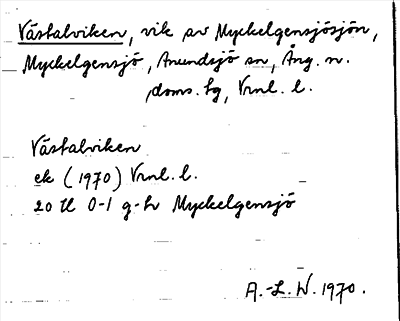 Västalviken, vik av Myckelgensjösjön,
Myckelgensjö, Anundsjö sn, Ång. n.
doms. hg, Vrnl. l.
Västalviken
ek (1970) Vrnl. l.
20 tl 0-1 g-h Myckelgensjö
A.-L. W. 1970.